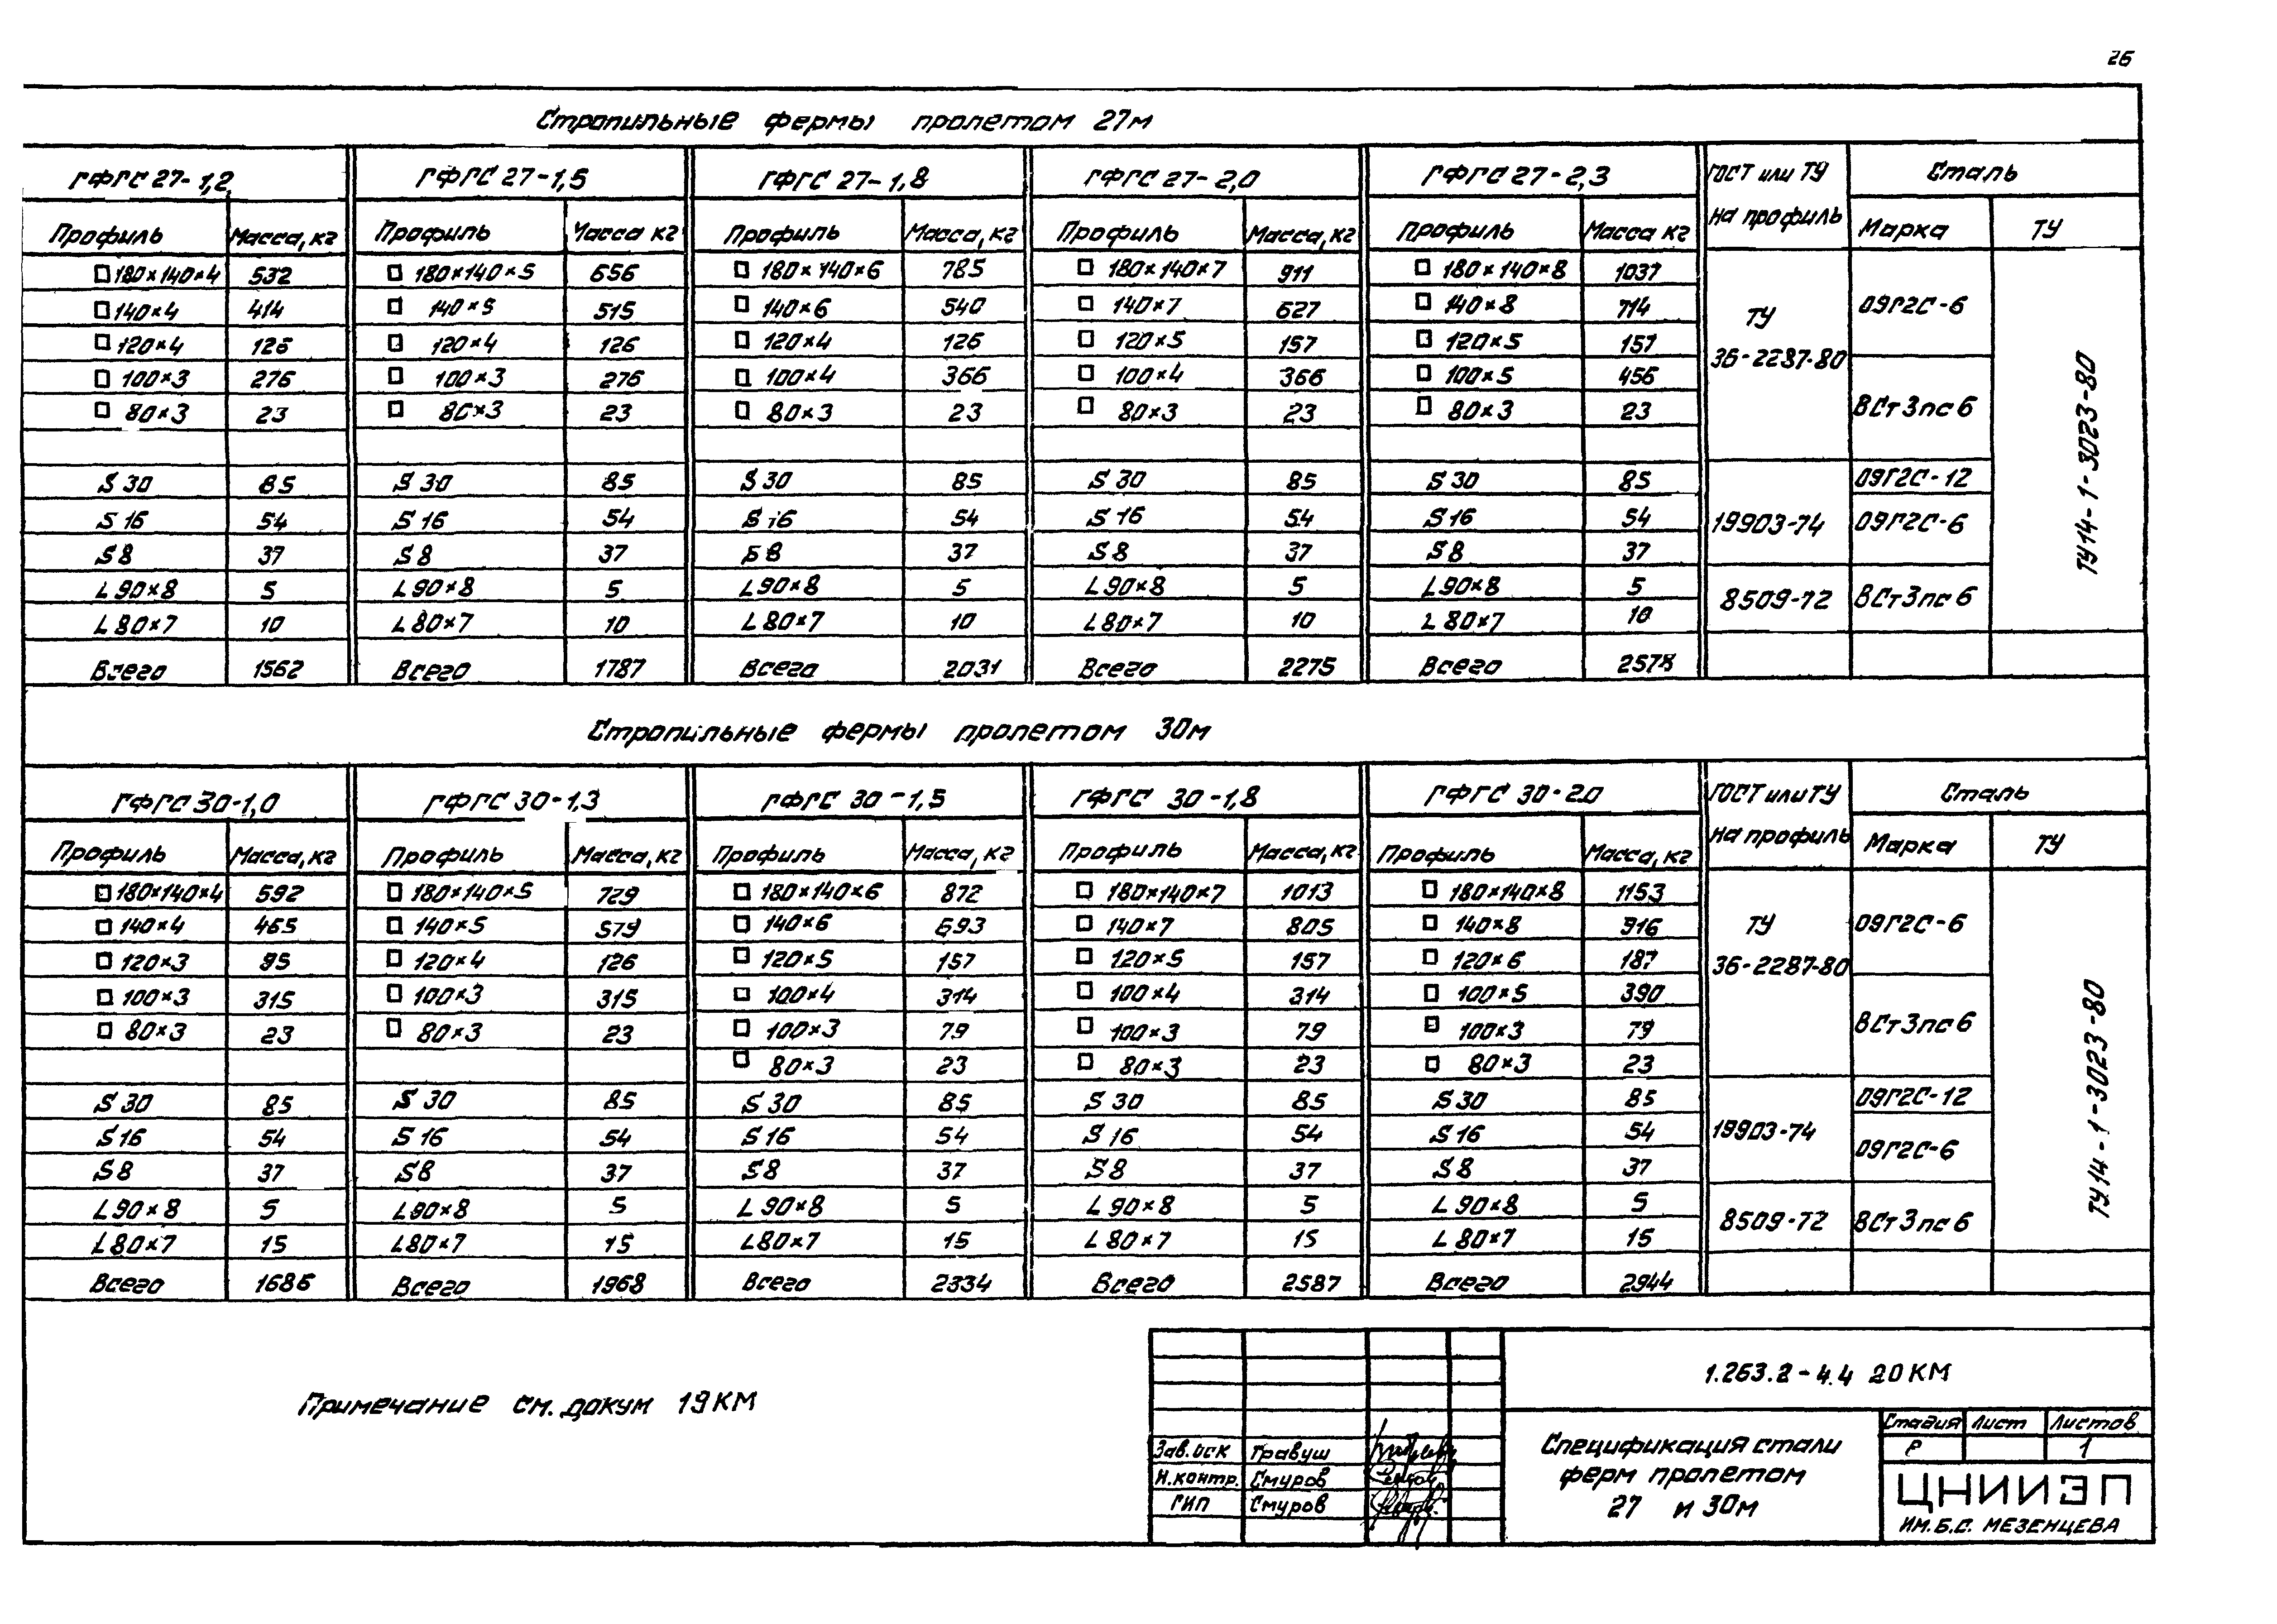 26
Стропильные фермы пролетом 27м
ГФГС 27-1,2 ГФГС 27-1,5 ГФГС 27-1,8 ГФГС 27-2,0 ГФГС 27-2,3 ГОСТ или ТУ на профиль Сталь
Профиль Масса, кг Профиль Масса кг Профиль Масса, кг Профиль Масса, кг Профиль Масса кг Марка ТУ
□ 180×140×4 532 □ 180×140×5 656 □ 180×140×6 785 □ 180×140×7 911 □ 180×140×8 1037
□ 140×4 414 □ 140×5 515 □ 140×6 540 □ 140×7 627 □ 140×8 714 ТУ 09Г2С-6
□ 120×4 126 □ 120×4 126 □ 120×4 126 □ 120×5 157 □ 120×5 157 36-2287-80
□ 100×3 276 □ 100×3 276 □ 100×4 366 □ 100×4 366 □ 100×5 456
□ 80×3 23 □ 80×3 23 □ 80×3 23 □ 80×3 23 □ 80×3 23 ВСт3пс6
S 30 85 S 30 85 S 30 85 S 30 85 S 30 85 09Г2С-12
S 16 54 S 16 54 S 16 54 S 16 54 S 16 54 19903-74 09Г2С-6
S 8 37 S 8 37 S 8 37 S 8 37 S 8 37
L 90×8 5 L 90×8 5 L 90×8 5 L 90×8 5 L 90×8 5 8509-72 ВСт3пс6
L 80×7 10 L 80×7 10 L 80×7 10 L 80×7 10 L 80×7 10
ТУ14-1-3023-80
Всего 1562 Всего 1787 Всего 2031 Всего 2275 Всего 2578
Стропильные фермы пролетом 30м
ГФГС 30-1,0 ГФГС 30-1,3 ГФГС 30-1,5 ГФГС 30-1,8 ГФГС 30-2.0 ГОСТ или ТУ на профиль Сталь
Профиль Масса, кг Профиль Масса, кг Профиль Масса, кг Профиль Масса, кг Профиль Масса, кг Марка ТУ
□ 180×140×4 592 □ 180×140×5 729 □ 180×140×6 872 □ 180×140×7 1013 □ 180×140×8 1153
□ 140×4 465 □ 140×5 579 □ 140×6 693 □ 140×7 805 □ 140×8 916 ТУ 09Г2С-6
□ 120×3 95 □ 120×4 126 □ 120×5 157 □ 120×5 157 □ 120×6 187 36-2287-80
□ 100×3 315 □ 100×3 315 □ 100×4 314 □ 100×4 314 □ 100×5 390
□ 80×3 23 □ 80×3 23 □ 100×3 79 □ 100×3 79 □ 100×3 79 ВСт3пс6
□ 80×3 23 □ 80×3 23 □ 80×3 23
S 30 85 S 30 85 S 30 85 S 30 85 S 30 85 09Г2С-12
S 16 54 S 16 54 S 16 54 S 16 54 S 16 54 19903-74 09Г2С-6
S 8 37 S 8 37 S 8 37 S 8 37 S 8 37
L 90×8 5 L 90×8 5 L 90×8 5 L 90×8 5 L 90×8 5 8509-72 ВСт3пс6
L 80×7 15 L 80×7 15 L 80×7 15 L 80×7 15 L 80×7 15
ТУ14-1-3023-80
Всего 1686 Всего 1968 Всего 2334 Всего 2587 Всего 2944
Примечание см. докум 19КМ
1.263.2-4.4 20КМ
Зав. оск Травуш
Н.контр. Смуров
ГИП Смуров
Спецификация стали
ферм пролетом
27 и 30м
Стадия Лист Листов
Р 1
ЦНИИЭП
ИМ. Б.С. МЕЗЕНЦЕВА